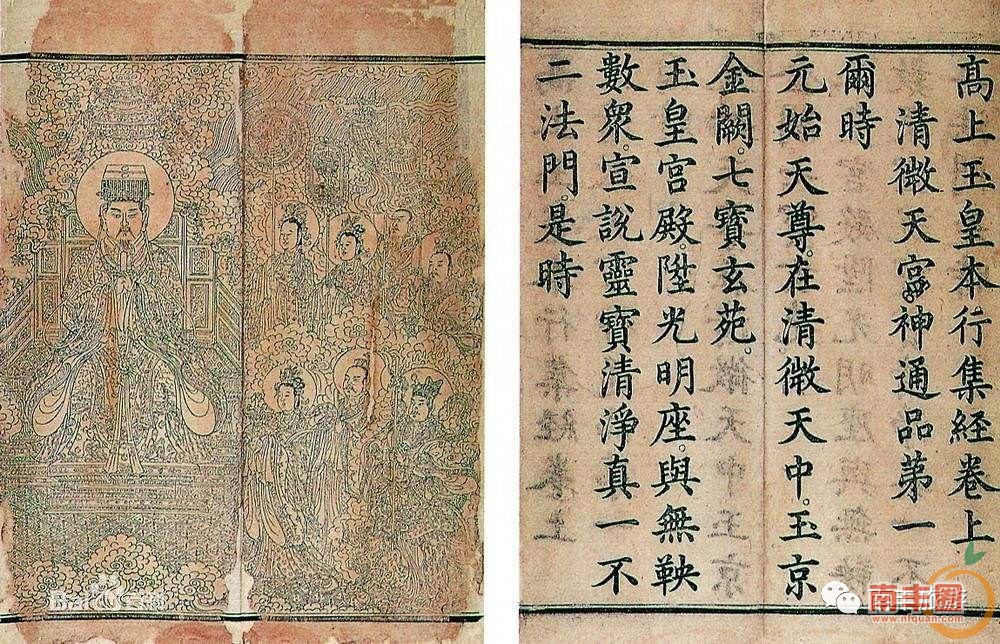 高上玉皇本行集經卷上
清微天宮神通品第一
爾時
元始天尊。在清微天中。玉京
金闕。七寶玄苑。
玉皇宮殿。陞光明座。與無鞅
數衆。宣說靈寶清淨真一不
二法門。是時
Bai
南丰圈
www.nfquan.com